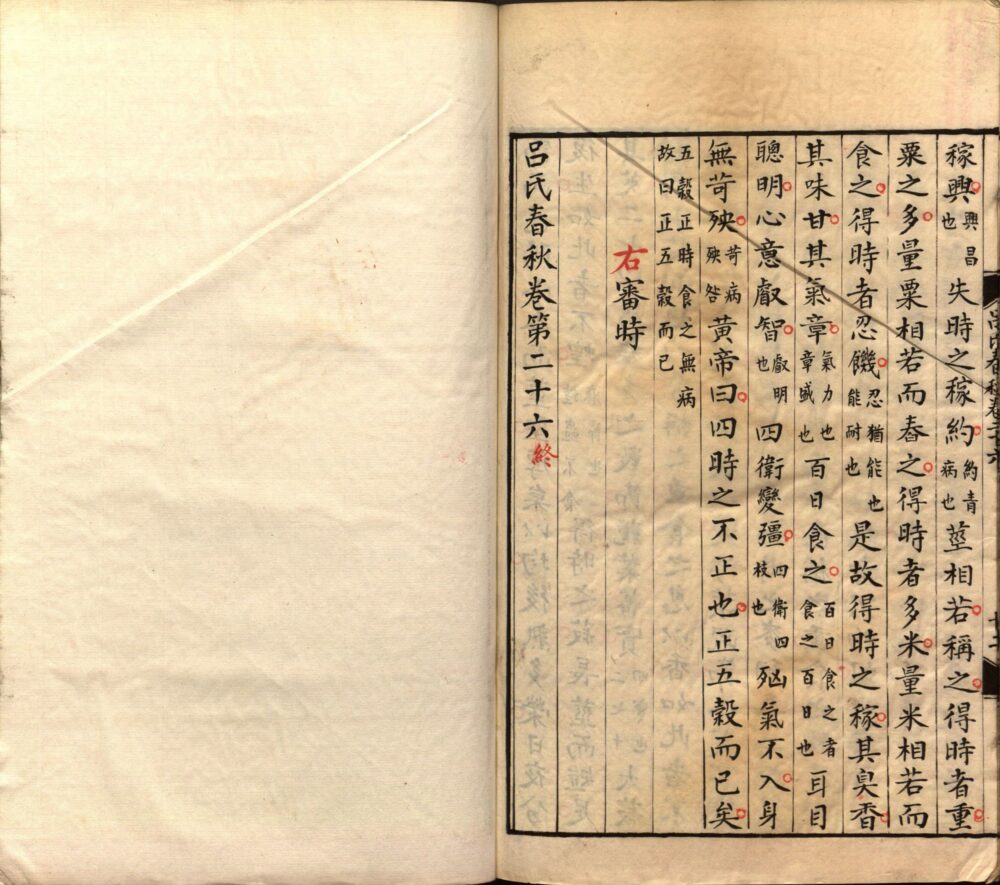 稼興興昌也失時之稼約約青病也莖相若稱之得時者重
粟之多量粟相若而舂之得時者多米量米相若而
食之得時者忍饑忍猶能也能耐也是故得時之稼其臭香
其味甘其氣章氣力也章盛也百日食之百日食之者食之百日也耳目
聰明心意叡智叡明也四衛變彊四衛四枝也氣不入身
無苛殃苛病殃咎黃帝曰四時之不正也正五穀而已矣
五穀正時食之無病故曰正五穀而已
右審時
呂氏春秋卷第二十六終